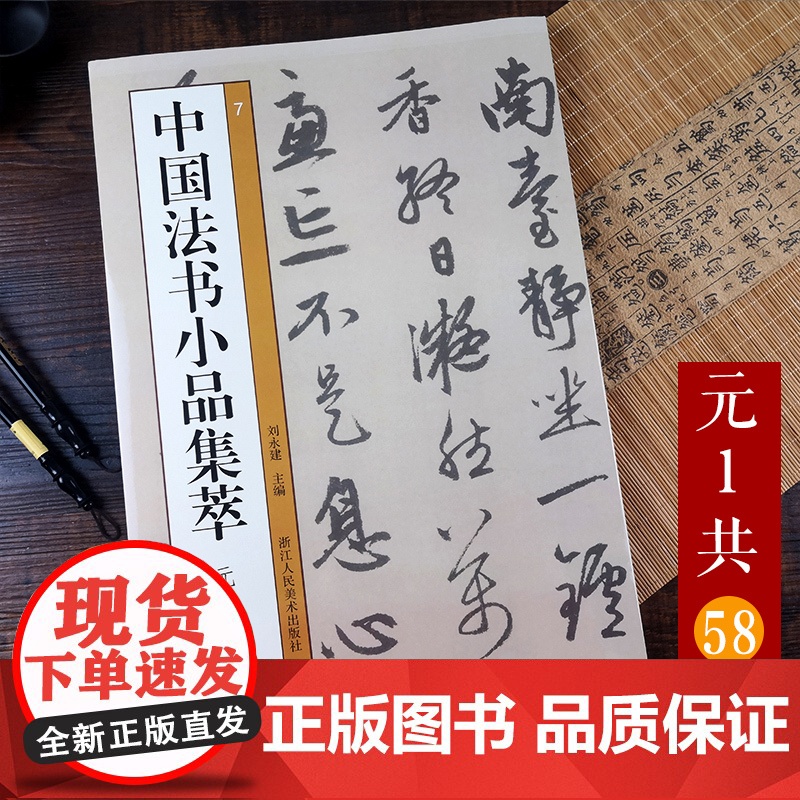 7
中国法书小品集萃
元
刘永建 主编
浙江人民美术出版社
南臺静坐一鑪
香終日凝然萬
慮亡不是息心
元1共58
现货
下单速发
全新正版现货
正版图书 品质保证